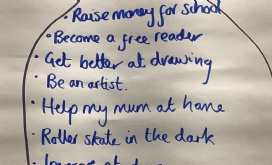 • Raise money for school
• Become a free reader
• Get better at drawing
• Be an artist.
• Help my mum at home
• Roller skate in the dark